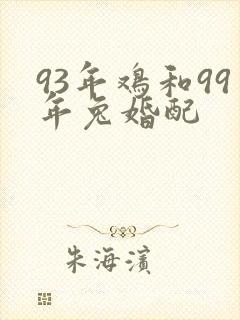 93年鸡和99
年兔婚配
朱海滨